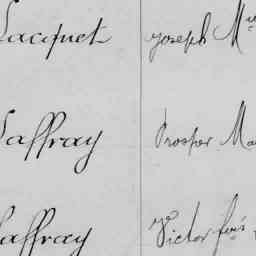 Jacquet Joseph M
Saffray Prosper Ma
Saffray Victor fois